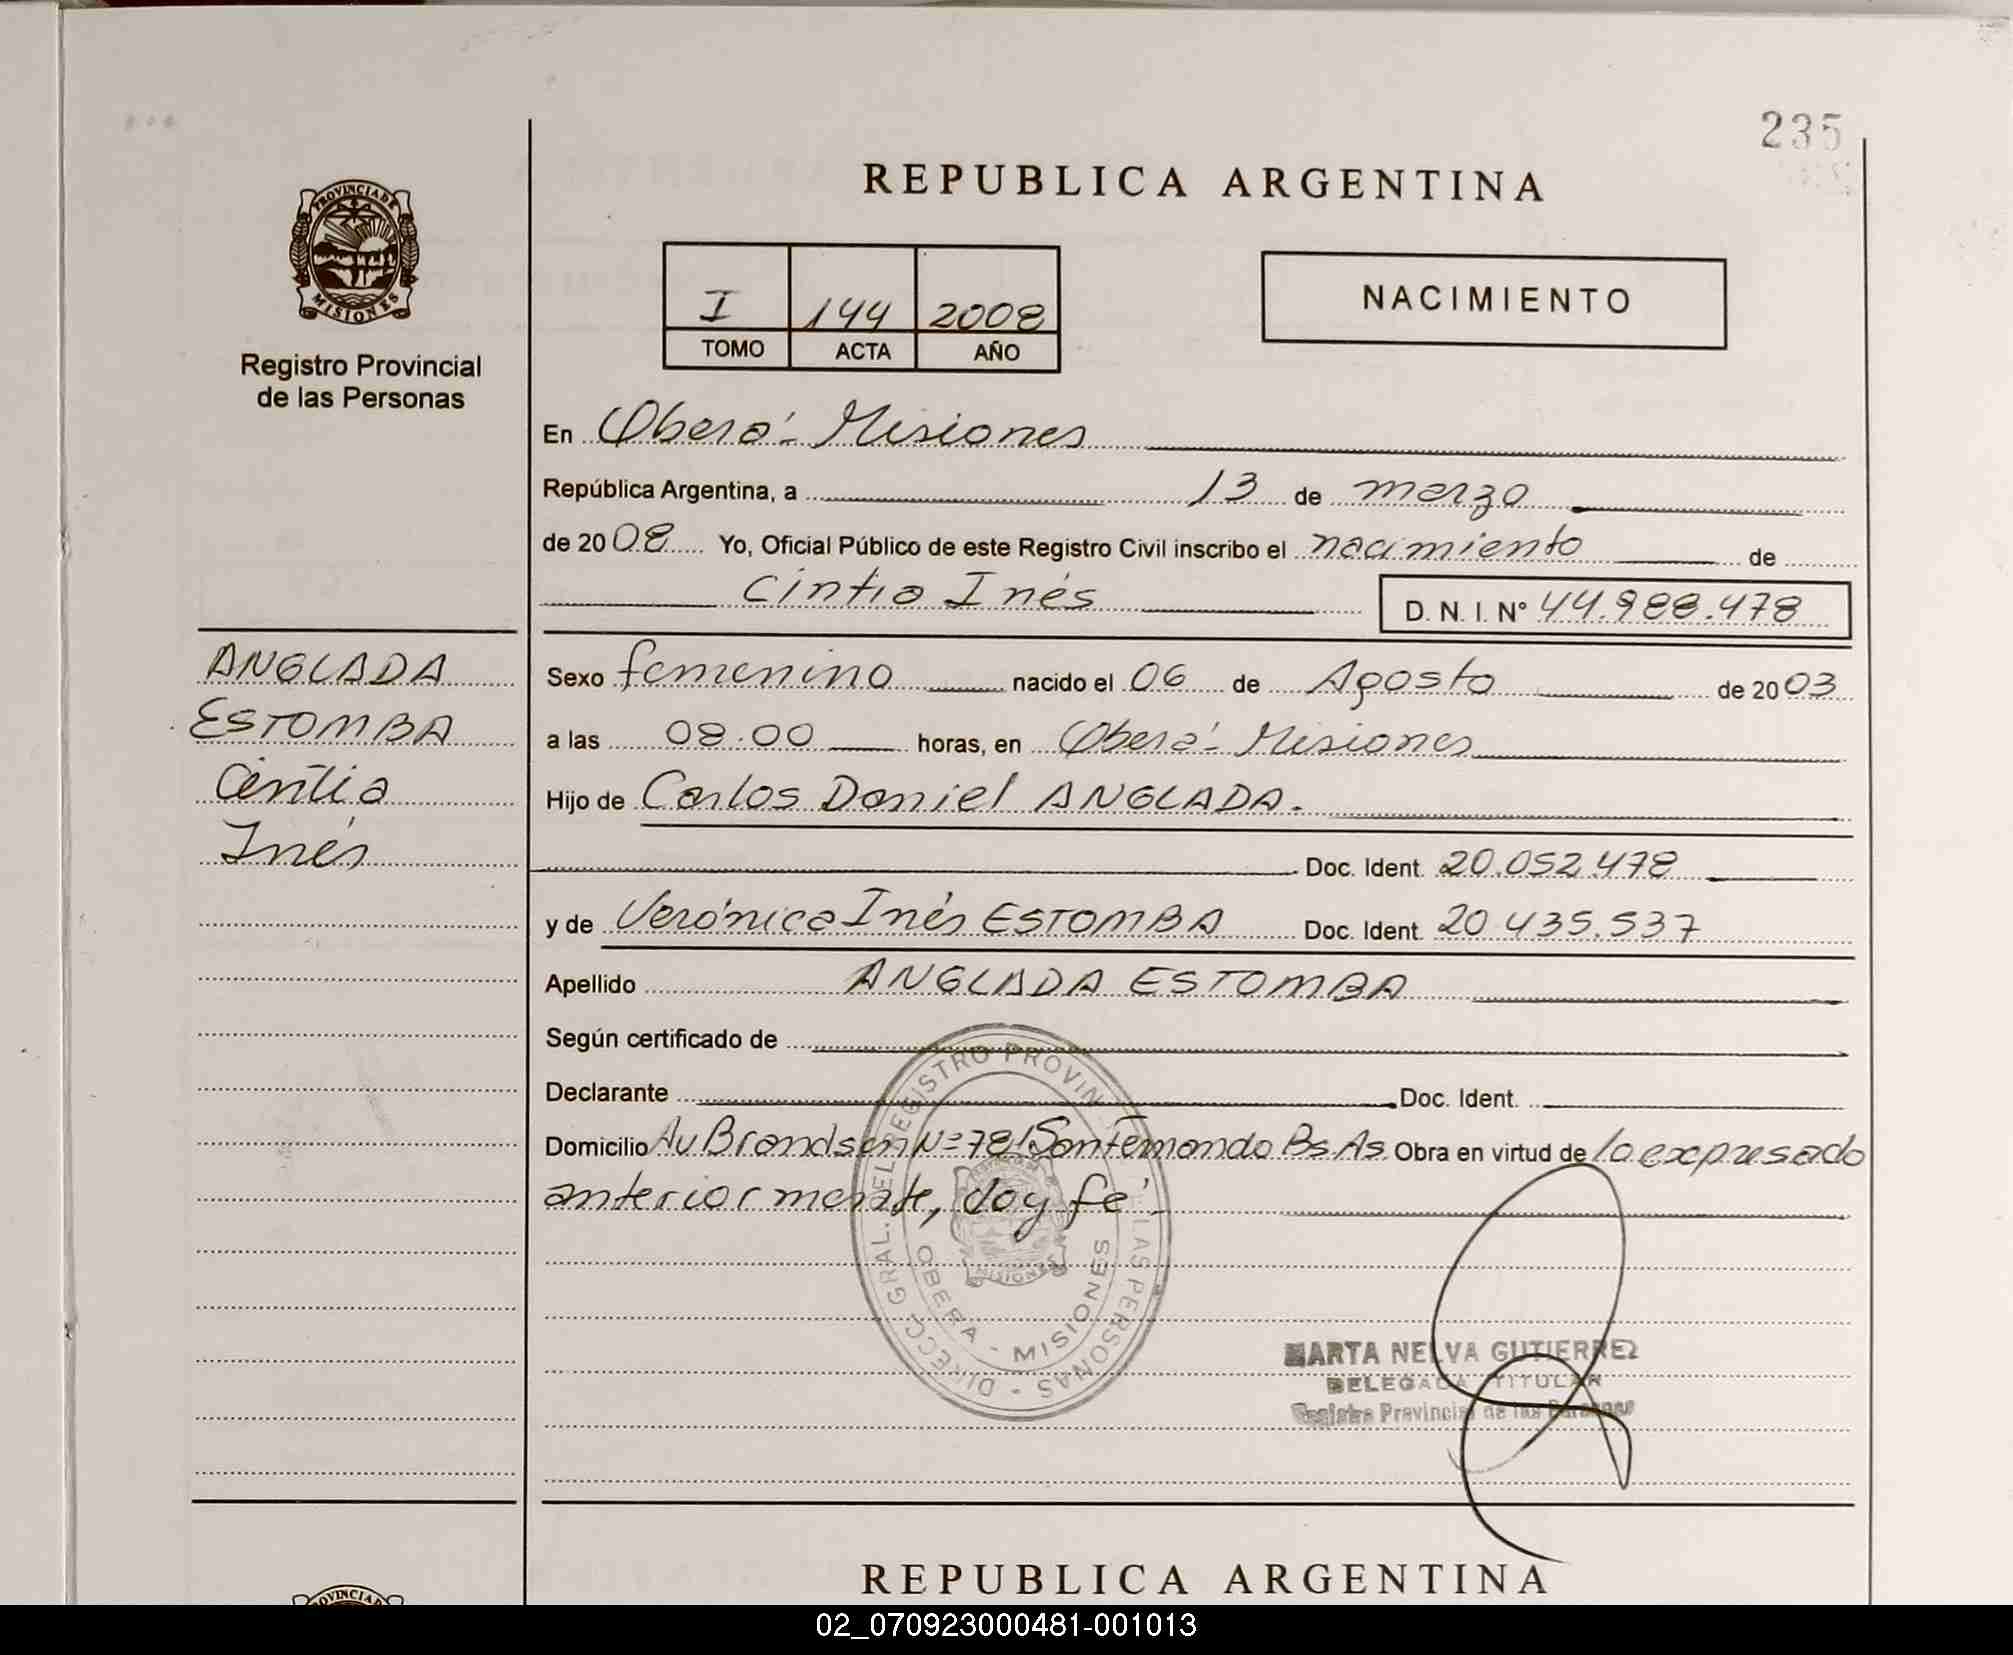 235
PROVINCIA DE
MISIONES
Registro Provincial
de las Personas
REPUBLICA ARGENTINA
I 144 2008
TOMO ACTA AÑO
NACIMIENTO
En Oberá - Misiones
República Argentina, a 13 de marzo
de 2008 Yo, Oficial Público de este Registro Civil inscribo el nacimiento de
Cintia Inés D. N. I. N° 44.988.478
ANGLADA
ESTOMBA
Cintia
Inés
Sexo femenino nacido el 06 de Agosto de 2003
a las 08.00 horas, en Oberá - Misiones
Hijo de Carlos Daniel ANGLADA.
Doc. Ident. 20.052.478
y de Verónica Inés ESTOMBA Doc. Ident. 20.435.537
Apellido ANGLADA ESTOMBA
Según certificado de
Declarante Doc. Ident.
Domicilio Av Brandsen N= San Fernando Bs. As. Obra en virtud de lo expresado
anteriormente, doy fé.
DIRECC. GRAL. DEL REGISTRO PROVIN LAS PERSONAS
OBERA - MISIONES
MISIONES
MARTA NELVA GUTIERREZ
DELEGADA TITULAR
Registro Provincial de las Personas
PROVINCIA
REPUBLICA ARGENTINA
02_070923000481-001013